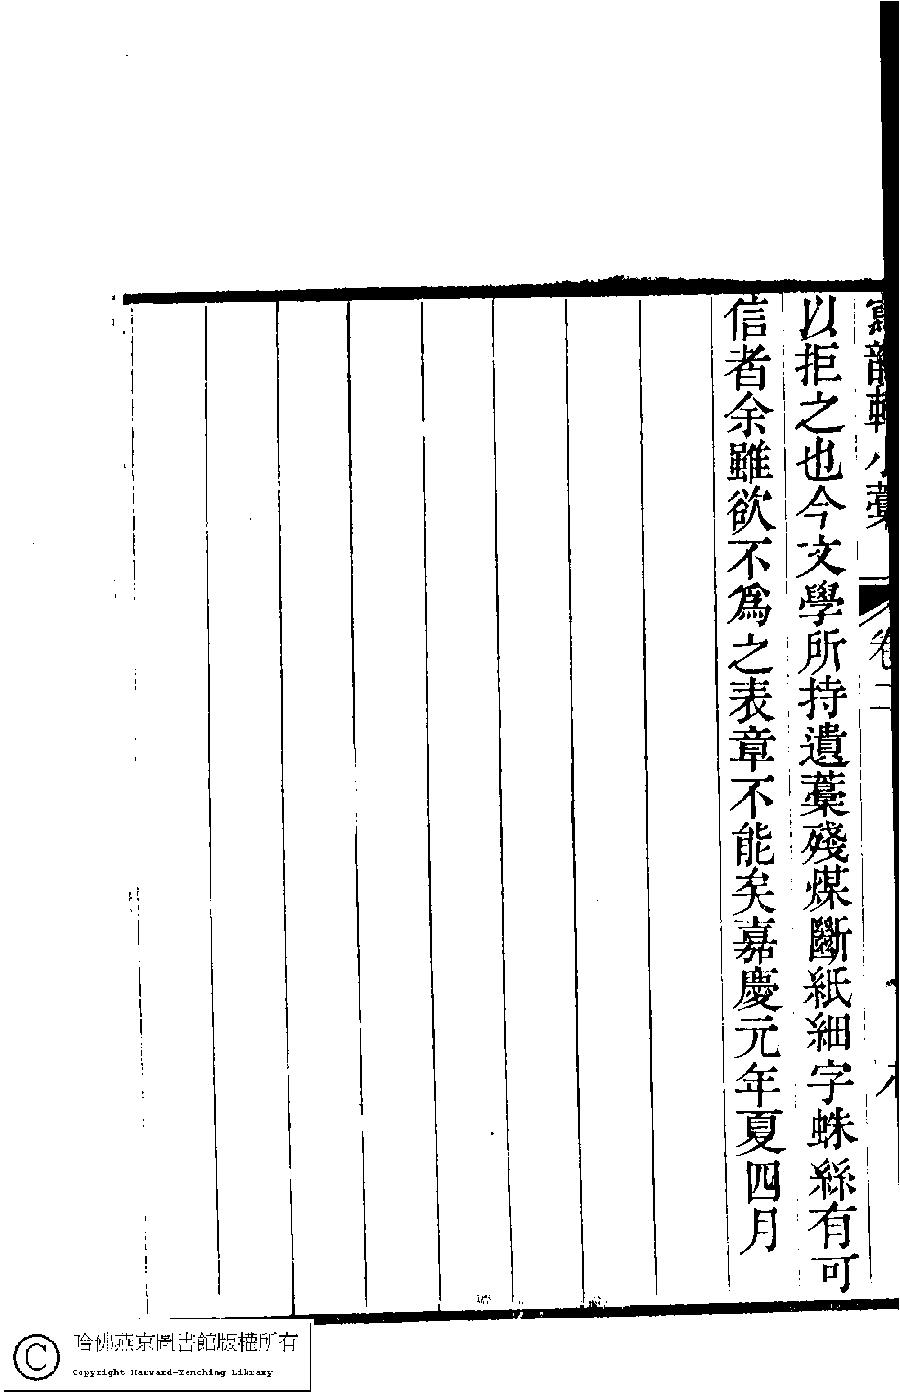 寫韻軒小藁 卷二
以拒之也今文學所持遺藁殘煤斷紙細字蛛絲有可
信者余雖欲不爲之表章不能矣嘉慶元年夏四月
哈佛燕京圖書館版權所有
Copyright Harvard-Yenching Library